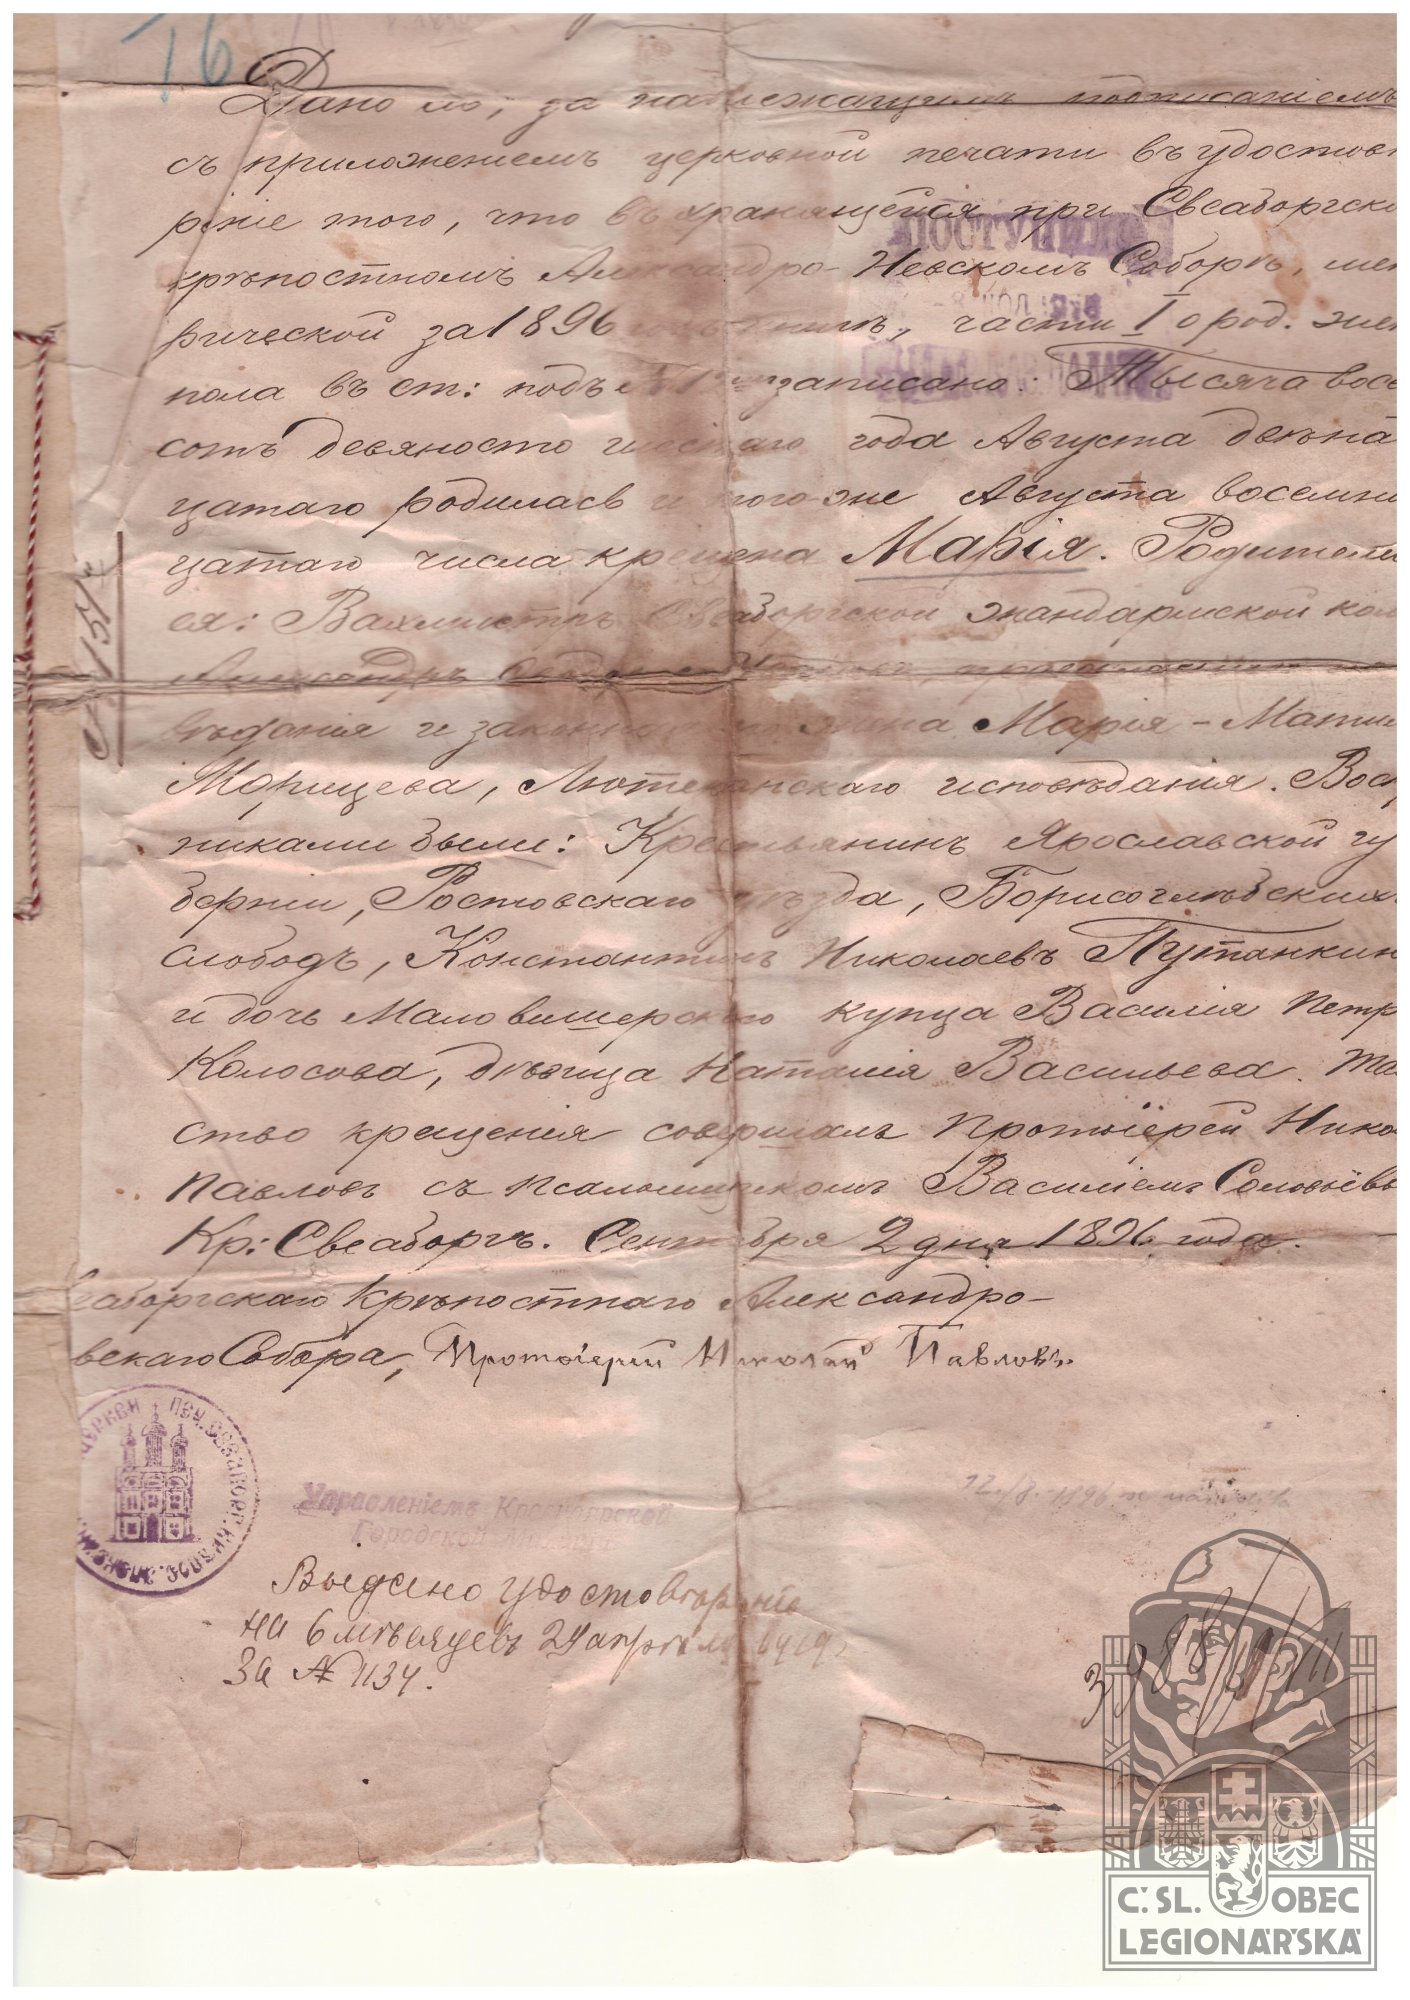 16
Дано сіе, за надлежащимъ подписаніемъ
съ приложеніемъ церковной печати въ удостовѣ
реніе того, что въ хранящейся при Свеаборгско
крѣпостномъ Александро-Невскомъ Соборѣ, мет
рической за 1896 годъ книгѣ, части I о род. жен
пола въ ст: подъ № записано: Тысяча восе
сотъ девяносто шестаго года Августа двѣна
цатаго родилась и того-же Августа восемна
цатаго числа крещена Марія. Родители
ея: Вахмистръ Свеаборгской жандармской ком
Александръ православнаго испо
вѣданія и законная его жена Марія-Мати
Морицева, Лютеранскаго исповѣданія. Воспр
никами были: Крестьянинъ Ярославской гу
берніи, Ростовскаго уѣзда, Борисоглѣбскихъ
слободъ, Константинъ Николаевъ Путанкин
и дочь Маловишерскаго купца Василія Петр
Колосова, дѣвица Наталія Васильева. Таи
ство крещенія совершалъ Протоіерей Нико
Павловъ съ псаломщикомъ Василіемъ Соловьёвы
Кр: Свеаборгъ. Сентября 2 дня 1896 года.
еаборгскаго Крѣпостнаго Александро-
вскаго Собора, Протоіерей Николай Павловъ.
ЦЕРКВИ ПЕЧ. СВЕАБОРГ. КРѢПОС.
Управленіемъ Красноярской
Городской
Выдано удостовѣреніе
на 6 мѣсяцевъ 29 апрѣля 1919 г
За № 1134.
12/8 1896
3988
ПОСТУПИЛО
Č. SL. OBEC
LEGIONÁŘSKÁ